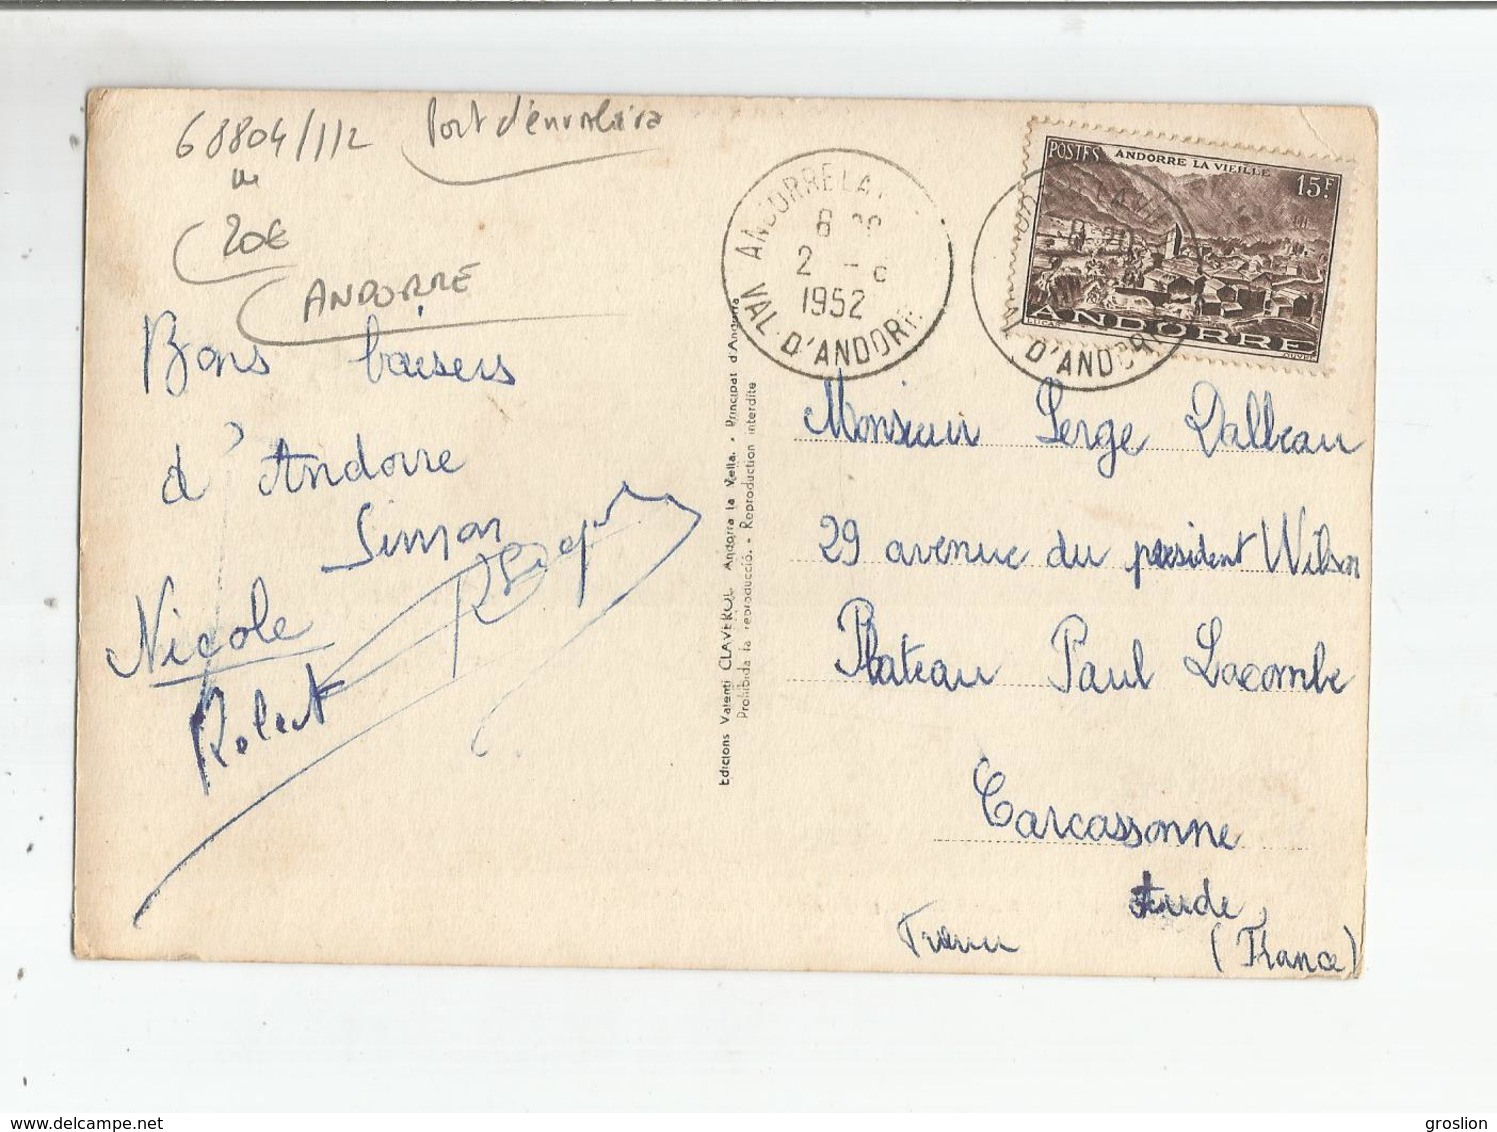 68804/112
Port d'envalira
20€
ANDORRE
Bons baisers
d'Andorre
Simon
Nicole
Robert
Edicions Valentí CLAVEROL Andorra la Vella. - Principat d'Andorra
Prohibida la reproducció. - Reproduction interdite
ANDORRE LA
8
2 -
1952
VAL. D'ANDORRE
POSTES ANDORRE LA VIEILLE 15F
ANDORRE
VAL D'ANDORRE
Monsieur Serge Dalbeau
29 avenue du president Wilson
Plateau Paul Lacombe
Carcassonne
Aude
(France)
delcampe.net
groslion